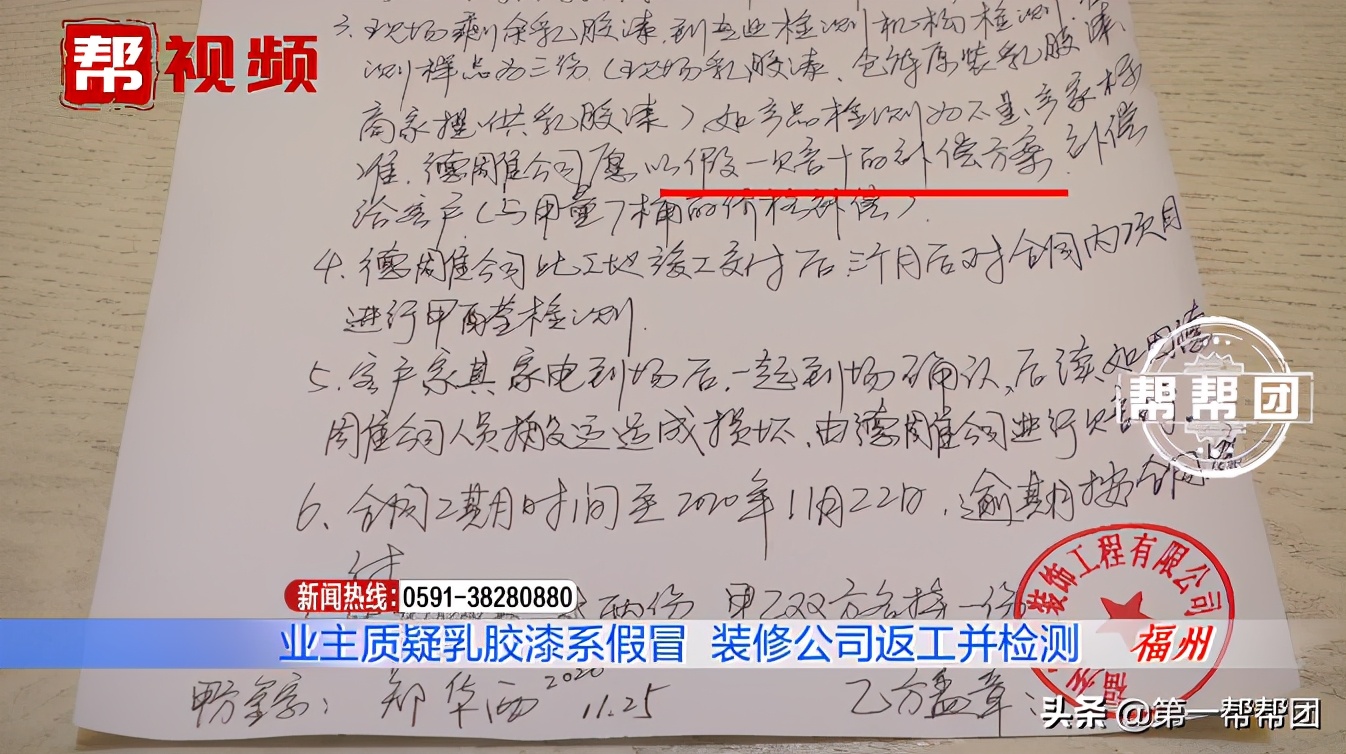 帮 视频
3. 现场剩余乳胶漆,到专业检测机构检测.
测样品为三份(现场乳胶漆、仓库原装乳胶漆、
商家提供乳胶漆)如产品检测为不是厂家标
准.德周佳公司愿以假一赔十的补偿方案.补偿
给客户(与用量7桶的价格补偿).
4. 德周佳公司此工地竣工交付后三个月后对合同内项目
进行甲醛检测.
5. 客户家具家电到场后,一起到场确认,后续如因德
周佳公司人员搬运造成损坏,由德周佳公司进行
帮帮团
6、合同工期时间至2020年11月22日,逾期按合同
付
新闻热线: 0591-38280880
两份 甲乙双方各持一份
装饰工程有限公司
业主质疑乳胶漆系假冒 装修公司返工并检测 福州
甲方签字: 郑华西 2020 11.25
乙方盖章:
头条 @第一帮帮团